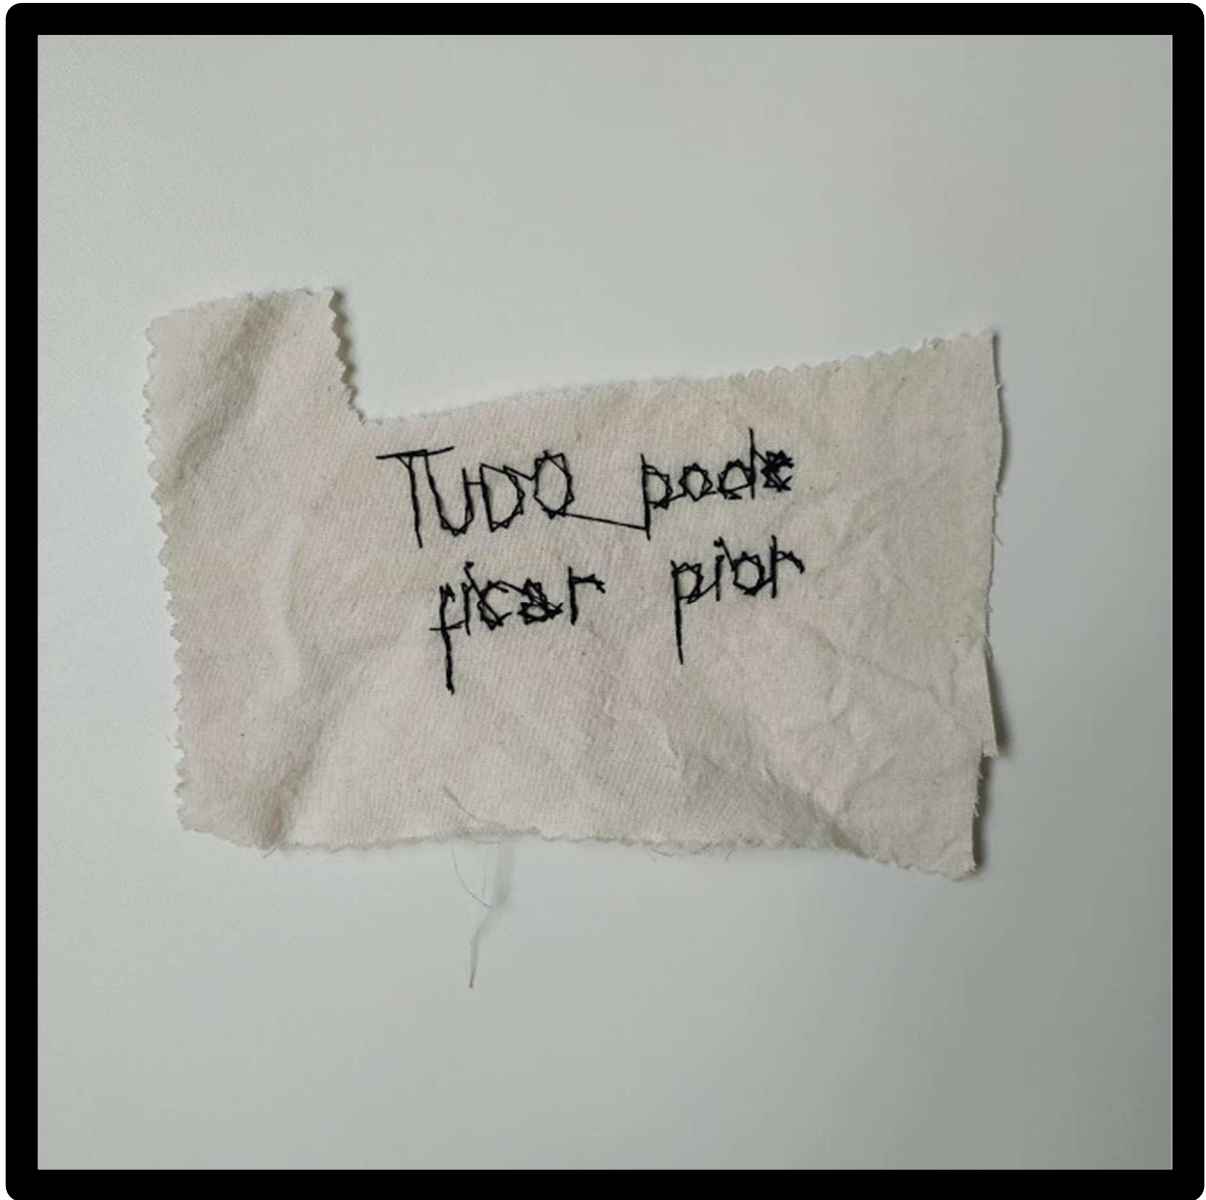 TUDO pode
ficar pior